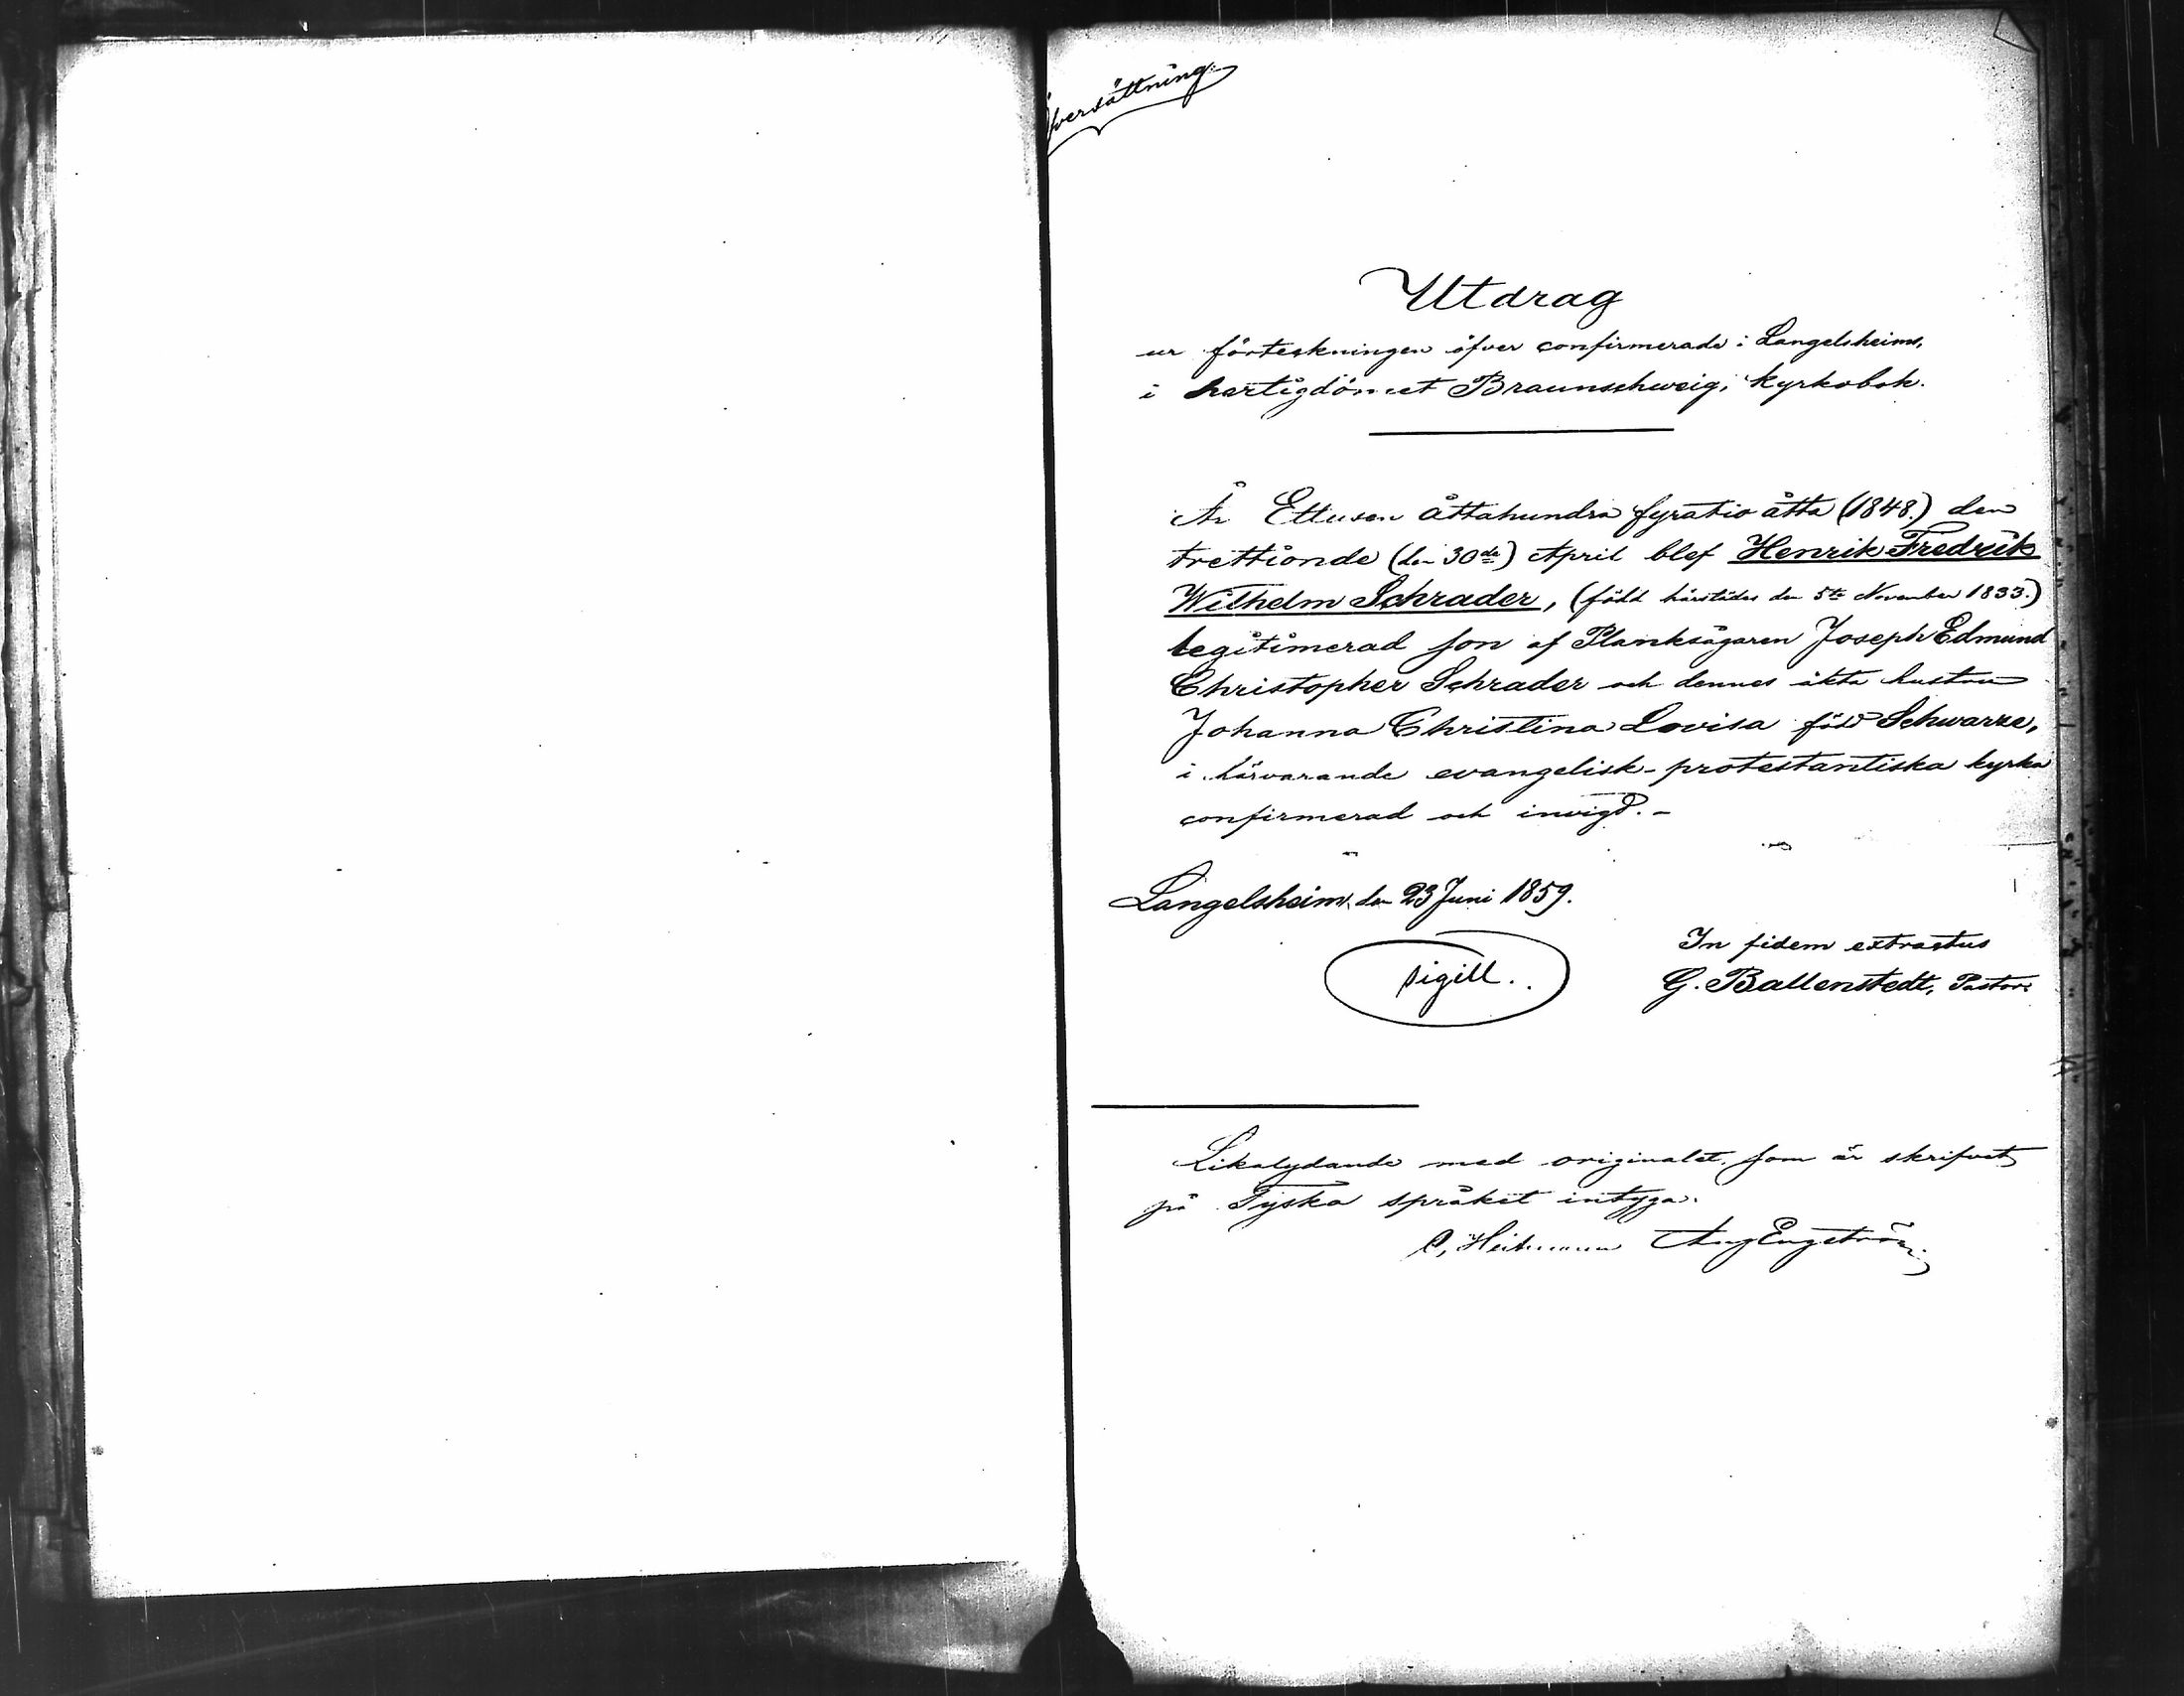 Öfversättning.
Utdrag
ur förteckningen öfver confirmerade i Langelsheims,
i hertigdömet Braunschweig, kyrkobok.
År Ettusen åttahundra fyratio åtta (1848.) den
trettionde (den 30de) April blef Henrik Fredrik
Wilhelm Schrader, (född härstädes den 5te November 1833.)
legitimerad son af Planksågaren Joseph Edmund
Christopher Schrader och dennes äkta hustru
Johanna Christina Lovisa född Schwarze,
i härvarande evangelisk-protestantiska kyrka
confirmerad och invigd. -
Langelsheim, den 23 Juni 1859.
In fidem extractus
sigill..
G. Ballenstedt, Pastor.
Likalydande med originalet, som är skrifvet
på Tyska språket intyga:
C, Heitmann Aug Engström.